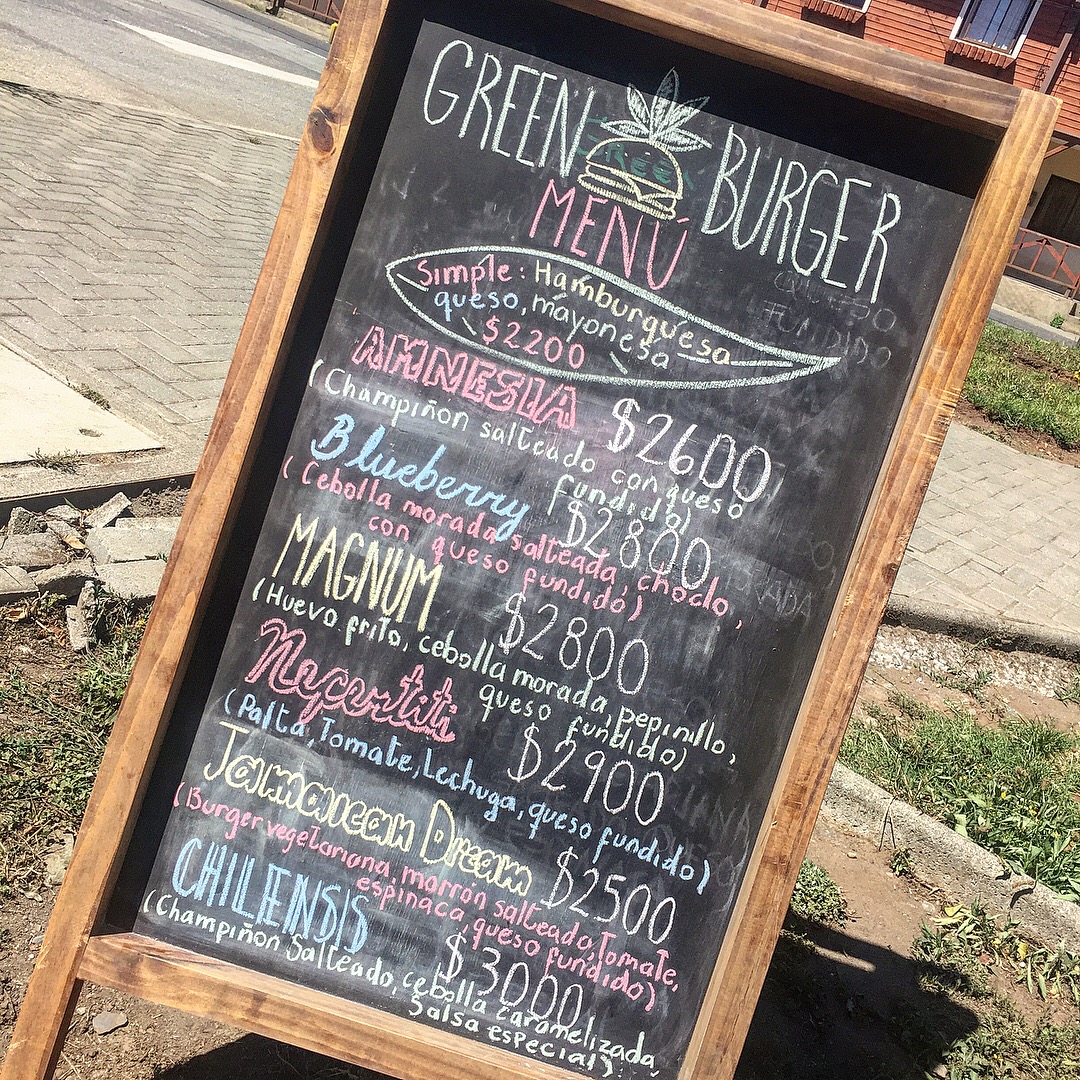 GREEN BURGER
MENÚ
Simple: Hamburguesa
queso, mayonesa
$2200
AMNESIA $2600
(Champiñon salteado con queso
fundido)
Blueberry $2800
(Cebolla morada salteada, choclo,
con queso fundido)
MAGNUM $2800
(Huevo frito, cebolla morada, pepinillo,
queso fundido)
Neferttiti $2900
(Palta, Tomate, Lechuga, queso fundido)
Jamaican Dream $2500
(Burger vegetariana, morrón salteado, Tomate,
espinaca, queso fundido)
CHILENSIS $3000
(Champiñon Salteado, cebolla caramelizada,
Salsa especial).